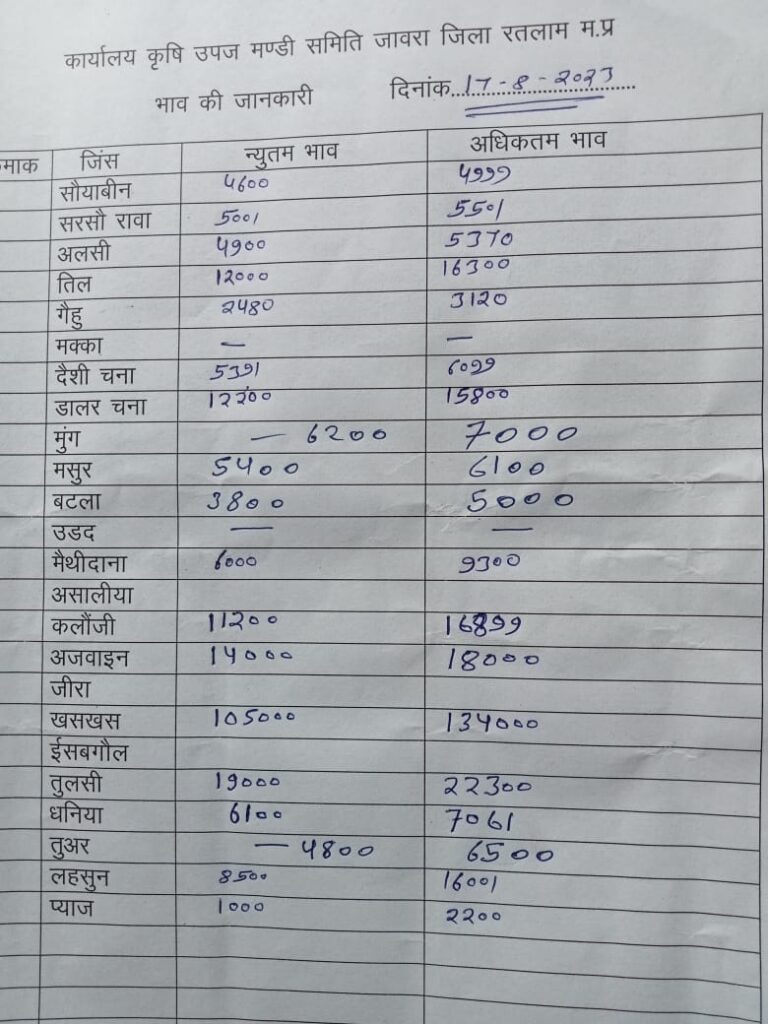 कार्यालय कृषि उपज मण्डी समिति जावरा जिला रतलाम म.प्र
भाव की जानकारी दिनांक 17-8-2023
माक जिंस न्युतम भाव अधिकतम भाव
सौयाबीन 4600 4999
सरसौ रावा 5001 5501
अलसी 4900 5370
तिल 12000 16300
गैहु 2480 3120
मक्का — —
दैशी चना 5391 6099
डालर चना 12200 15800
मुंग — 6200 7000
मसुर 5400 6100
बटला 3800 5000
उडद — —
मैथीदाना 6000 9300
असालीया
कलौंजी 11200 16899
अजवाइन 14000 18000
जीरा
खसखस 105000 134000
ईसबगौल
तुलसी 19000 22300
धनिया 6100 7061
तुअर — 4800 6500
लहसुन 8500 16001
प्याज 1000 2200